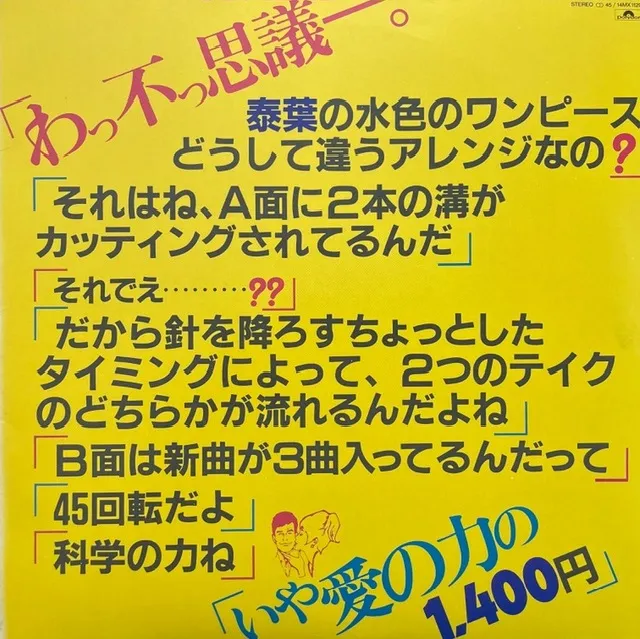 STEREO 45 / 14MX
「わっ不っ思議ー。
泰葉の水色のワンピース
どうして違うアレンジなの?
「それはね、A面に2本の溝が
カッティングされてるんだ」
「それでえ………??」
「だから針を降ろすちょっとした
タイミングによって、2つのテイク
のどちらかが流れるんだよね」
「B面は新曲が3曲入ってるんだって」
「45回転だよ」
「科学の力ね」
「いや愛の力の
1,400円」